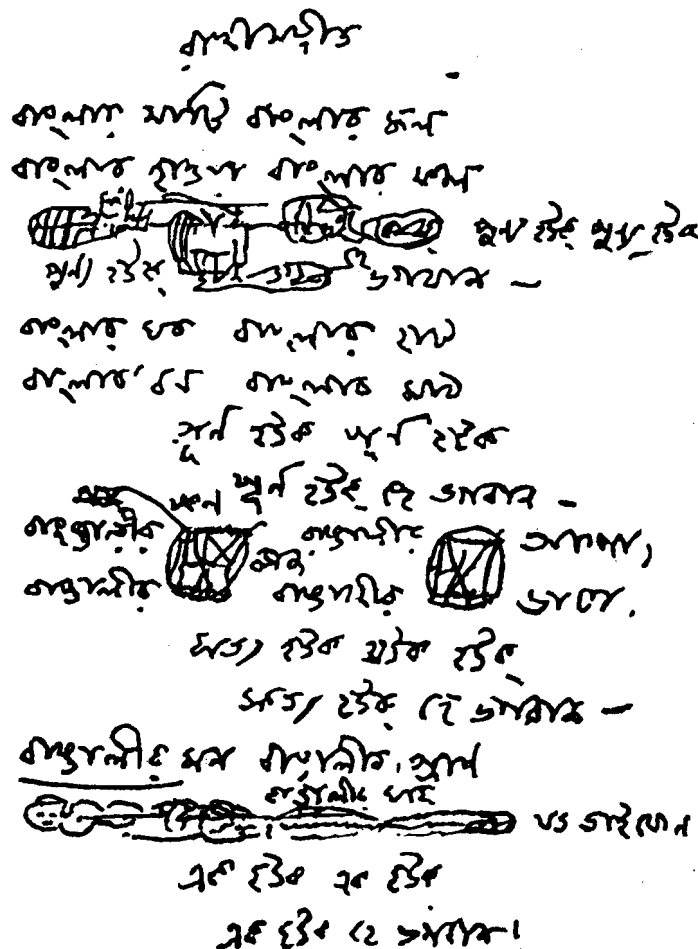 রাখীসংগীত
বাংলার মাটি বাংলার জল
বাংলার হাওয়া বাংলার ফল
পুণ্য হউক পুণ্য হউক
পুণ্য হউক ভগবান —
বাংলার ঘর বাংলার হাট
বাংলার বন বাংলার মাঠ
পূর্ণ হউক পূর্ণ হউক
পূর্ণ হউক হে ভগবান —
বাঙালীর বাঙালীর আশা,
বাঙালীর বাঙালীর ভাষা.
সত্য হউক সত্য হউক
সত্য হউক হে ভগবান —
বাঙালীর মন বাঙালীর প্রাণ
বাঙালীর ঘরে
যত ভাইবোন
এক হউক এক হউক
এক হউক হে ভগবান।